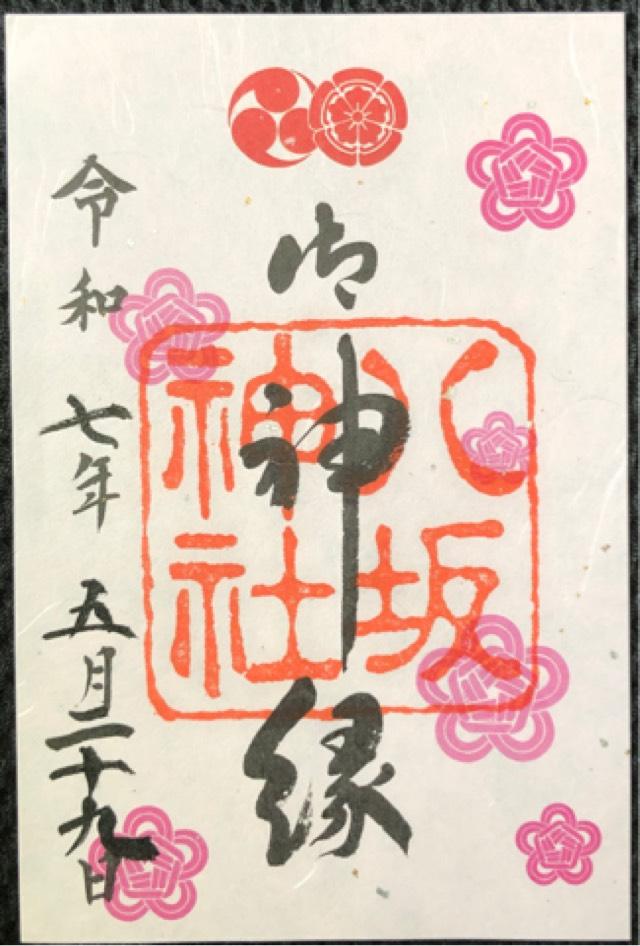 御神縁
八坂神社
令和七年五月二十九日